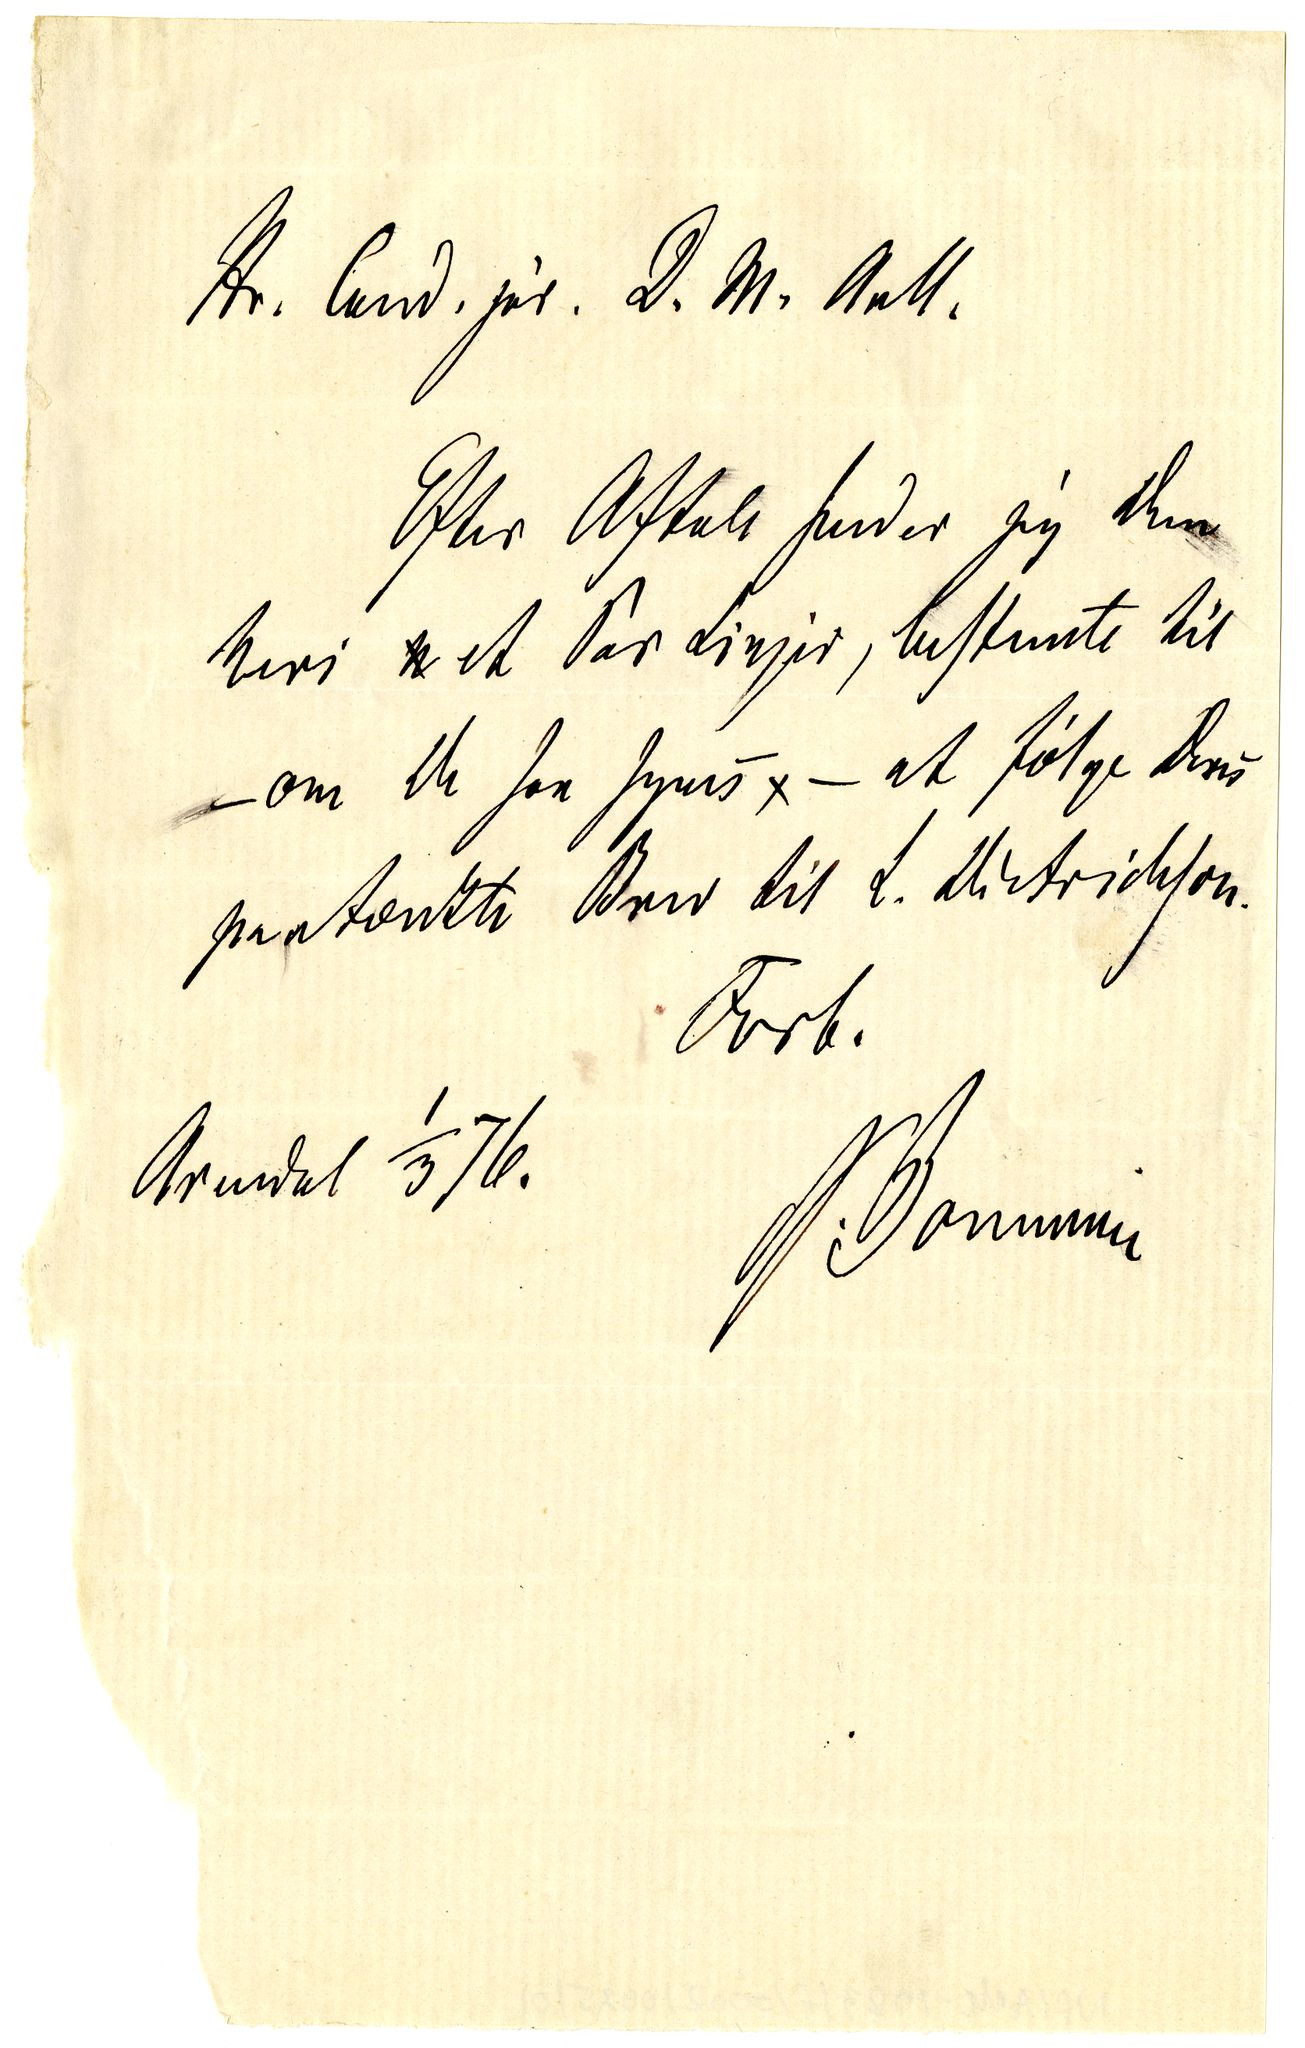 Hr. Cand. jur. D. M. Aall.
Efter Aftale sender jeg Dem
heri et Par Linjer, bestemte til
– om De saa synes × – at følge Deres
paatænkte Brev til L. Dietrichson.
Forb.
Arendal 1/3 76.